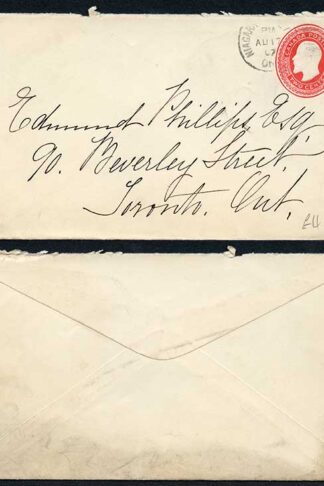 PM
AU 17
07
CANADA POSTAGE
TWO CENTS
Edmund Phillips, Esq.
90. Beverley Street,
Toronto. Ont.